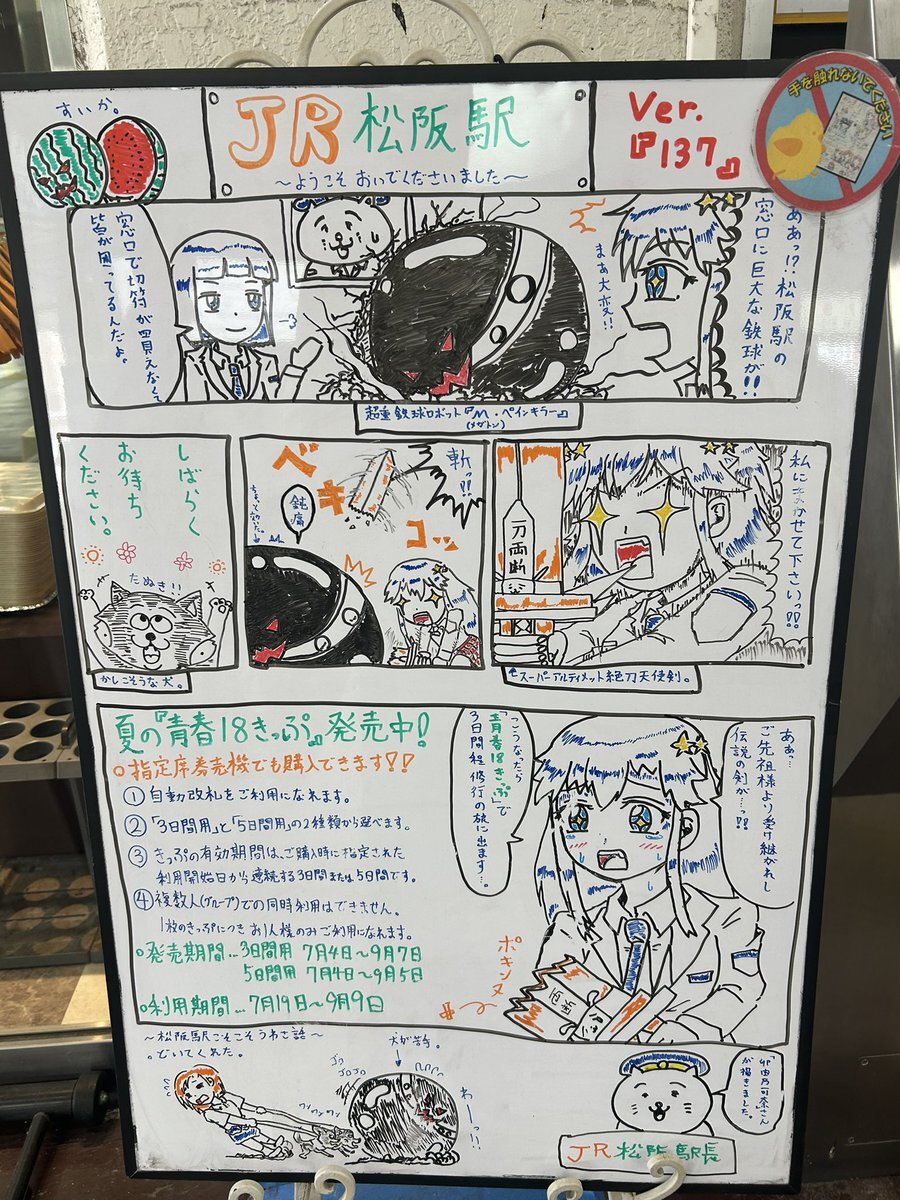 すいか。
JR松阪駅
～ようこそ おいでくださいました～
Ver.
『137』
手を触れないでください
ああっ!?松阪駅の
窓口に巨大な鉄球が!!
まあ大変!!
窓口で切符が買えなくて
皆が困ってるんだよ。
超重鉄球ロボット『M・ペインキラー』
(メガトン)
私にまかせて下さいっ!!
一刀両断
スーパーアルティメット絶刀天使剣。
斬っ!!
ベキ
コッ
鈍痛
しばらく
お待ち
ください。
たぬき!!
かしこそうな犬。
夏の『青春18きっぷ』発売中!
○指定席券売機でも購入できます!!
①自動改札をご利用になれます。
②「3日間用」と「5日間用」の2種類から選べます。
③きっぷの有効期間は、ご購入時に指定された
利用開始日から連続する3日間または5日間です。
④複数人(グループ)での同時利用はできません。
1枚のきっぷにつきお1人様のみご利用になれます。
○発売期間…3日間用 7月4日～9月7日
5日間用 7月4日～9月5日
○利用期間…7月19日～9月9日
ああっ…
ご先祖様より受け継がれし
伝説の剣が…っ!!
こうなったら
『青春18きっぷ』で
3日間程修行の旅に出ます…。
ポキンヌ
～松阪駅こそこそうわさ話～
。どいてくれた。
犬が苦手。
わーっ!!
が描きました。
JR松阪駅長